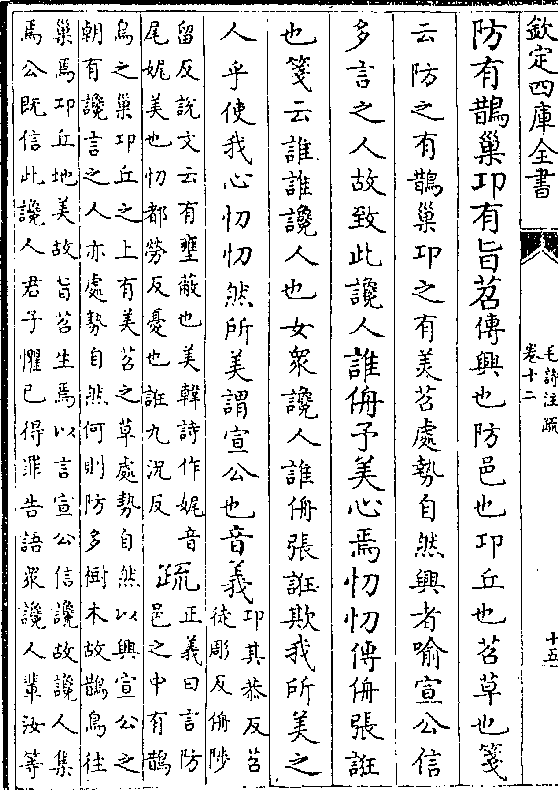 欽定四庫全書
毛詩注疏
卷十二
十五
防有鵲巢邛有旨苕傳興也防邑也邛丘也苕草也箋
云防之有鵲巢邛之有美苕處勢自然興者喻宣公信
多言之人故致此讒人誰侜予美心焉忉忉傳侜張誑
也箋云誰誰讒人也女衆讒人誰侜張誑欺我所美之
人乎使我心忉忉然所美謂宣公也音義
邛其恭反苕
徒彫反侜陟
留反説文云有壅蔽也美韓詩作娓音
尾娓美也忉都勞反憂也誑九況反
疏
正義曰言防
邑之中有鵲
鳥之巢邛丘之上有美苕之草處勢自然以興宣公之
朝有讒言之人亦處勢自然何則防多樹木故鵲鳥往
巢焉邛丘地美故旨苕生焉以言宣公信讒故讒人集
焉公既信此讒人君子懼已得罪告語衆讒人輩汝等